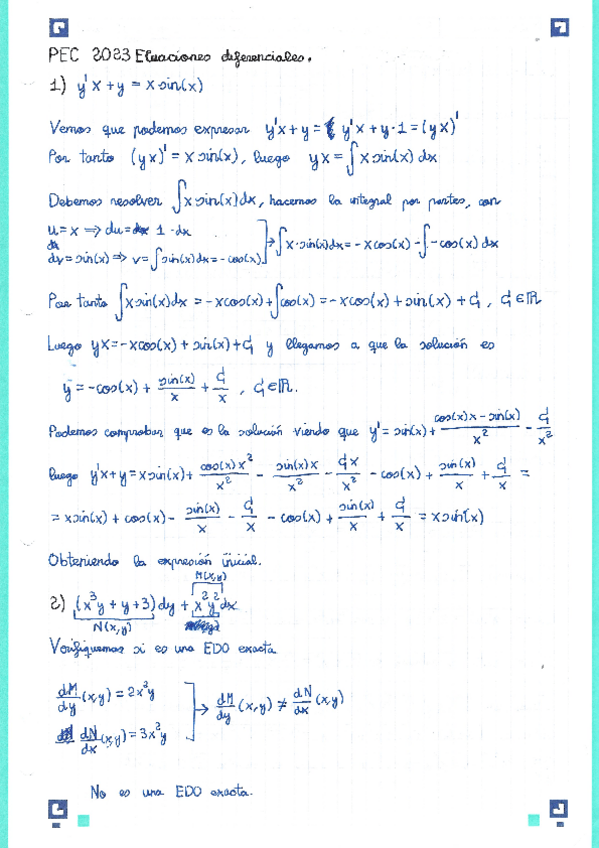 PEC 2023 Ecuaciones diferenciales.
1) y'x + y = x sin(x)
Vemos que podemos expresar y'x + y = y'x + y·1 = (yx)'
Por tanto (yx)' = x sin(x), luego yx = ∫ x sin(x) dx
Debemos resolver ∫ x sin(x) dx, hacemos la integral por partes, con
u = x ⟹ du = 1·dx
dv = sin(x) ⟹ v = ∫ sin(x) dx = -cos(x) → ∫ x·sin(x) dx = -x cos(x) - ∫ -cos(x) dx
Por tanto ∫ x sin(x) dx = -x cos(x) + ∫ cos(x) = -x cos(x) + sin(x) + C₁, C₁ ∈ ℝ
Luego yx = -x cos(x) + sin(x) + C₁ y llegamos a que la solución es
y = -cos(x) + sin(x)/x + C₁/x, C₁ ∈ ℝ.
Podemos comprobar que es la solución viendo que y' = sin(x) + (cos(x)x - sin(x))/x² - C₁/x²
luego y'x + y = x sin(x) + cos(x)x²/x² - sin(x)x/x² - C₁x/x² - cos(x) + sin(x)/x + C₁/x =
= x sin(x) + cos(x) - sin(x)/x - C₁/x - cos(x) + sin(x)/x + C₁/x = x sin(x)
Obteniendo la expresión inicial.
M(x,y)
2) (x³y + y + 3) dy + x²y² dx
N(x,y)
Verifiquemos si es una EDO exacta
dM/dy (x,y) = 2x²y
→ dM/dy (x,y) ≠ dN/dx (x,y)
dN/dx (x,y) = 3x²y
No es una EDO exacta.